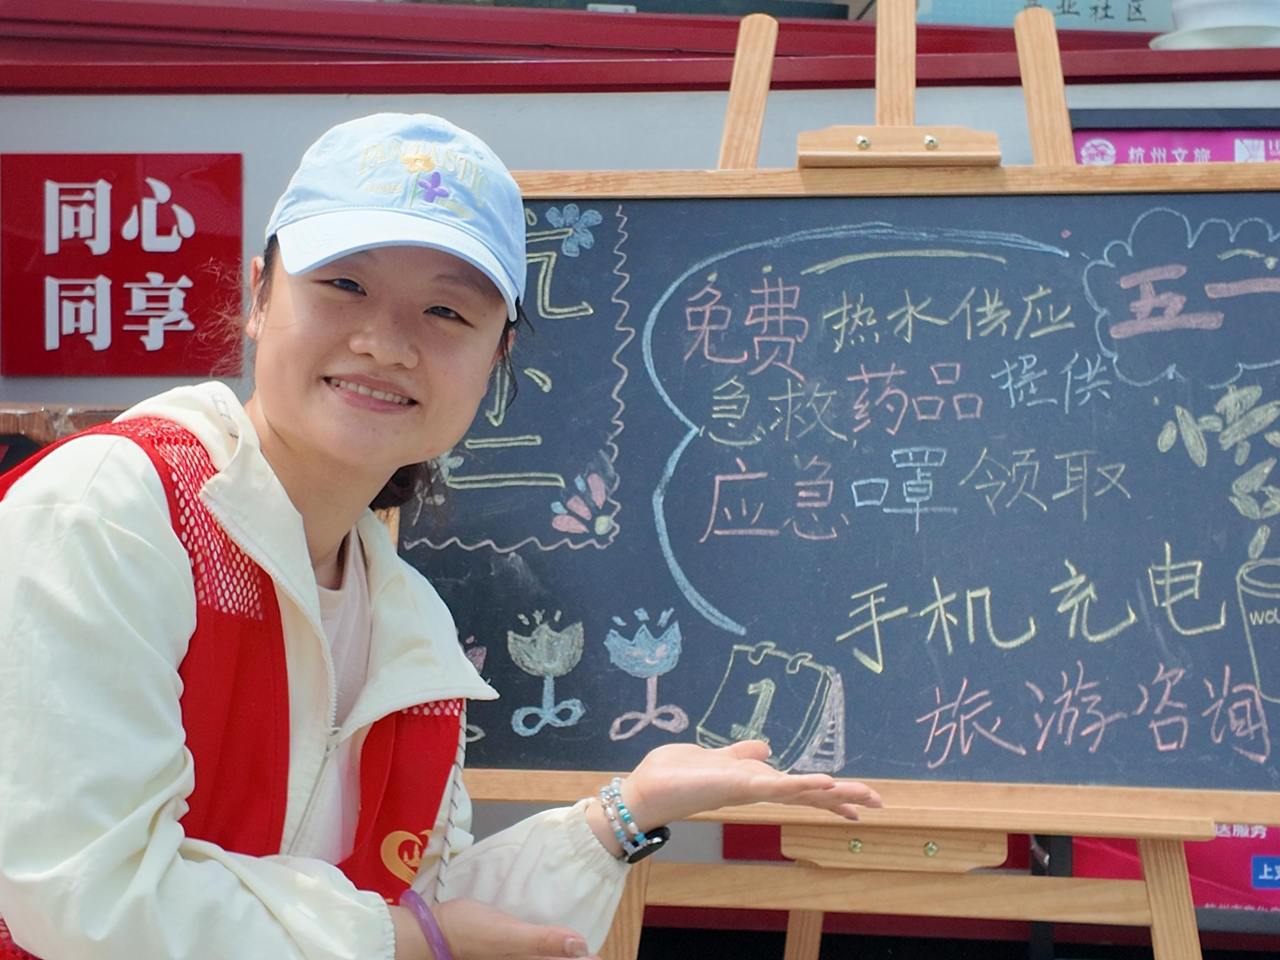 同心
同享
业社区
杭州文旅
FANTASTIC
免费热水供应
急救药品提供
应急口罩领取
手机充电
旅游咨询
五一
快
二
1
送服务